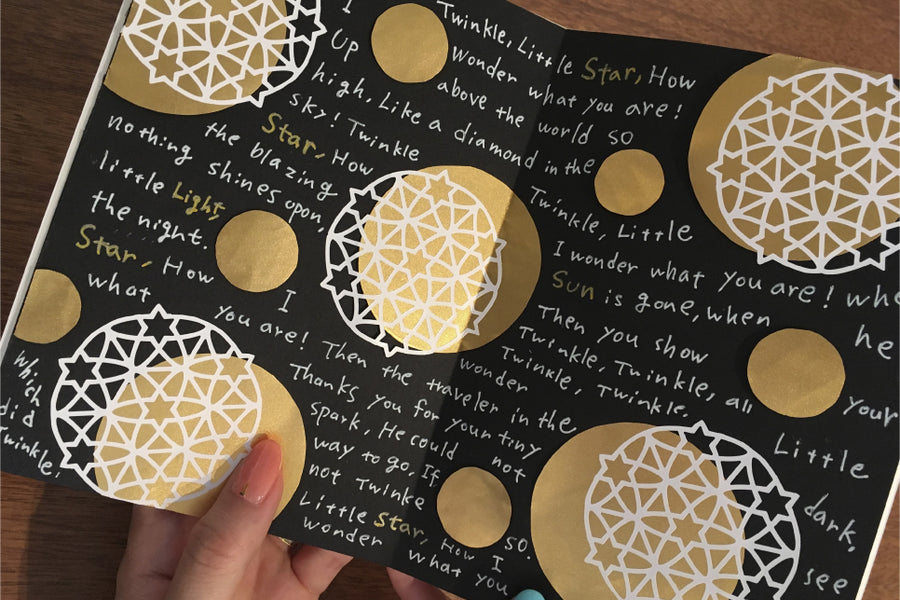 Twinkle, Little Star, How
I wonder what you are!
Up above the world so
high, Like a diamond in the
sky! Twinkle Twinkle, Little
Star, How I wonder what you are! whe
the blazing Sun is gone, when he
nothing shines upon, Then you show your
little Light, Twinkle, Twinkle, all
the night. Twinkle, Twinkle, Little
Star, How I wonder
what you are! Then the traveler in the dark,
Thanks you for your tiny
spark, He could not see
which way to go, If
did not Twinke so.
Twinkle, Little Star, How I
wonder what you